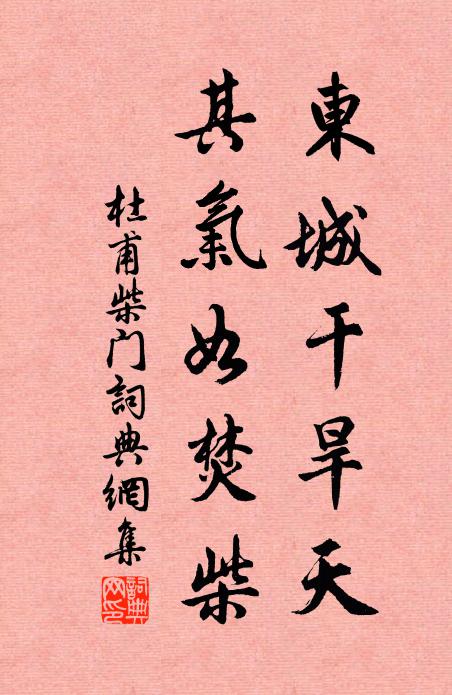 東城干旱天
其氣如焚柴
杜甫柴门詞典網集
詞典网印